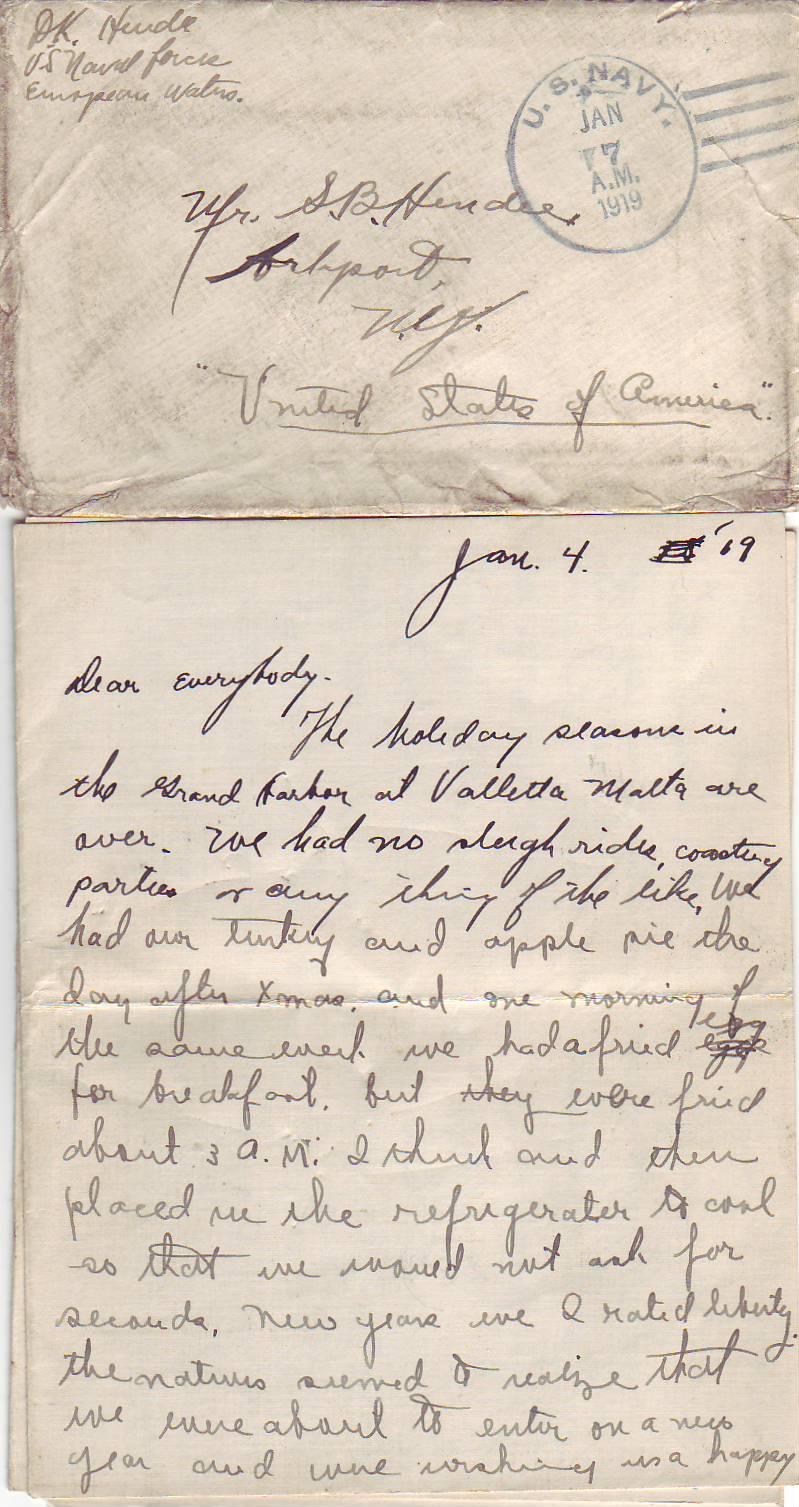 D.K. Hende
US Naval forces
European Waters.
U.S. NAVY.
JAN
7
A.M.
1919
Mr. S.B. Hendee,
Arkport,
N.Y.
"United States of America".
Jan. 4. '19
Dear Everybody.
The holiday seasons in
the Grand Harbor at Valletta Malta are
over. We had no sleigh rides, coasting
parties or any thing of the like, We
had our turkey and apple pie the
day after Xmas. and one morning of
the same week we had a fried egg
for breakfast. but they were fried
about 3 A.M. I think and then
placed in the refrigerater to cool
so that we would not ask for
seconds. New years eve I rated liberty.
the natives seemed to realize that
we were about to enter on a new
year and were wishing us a happy